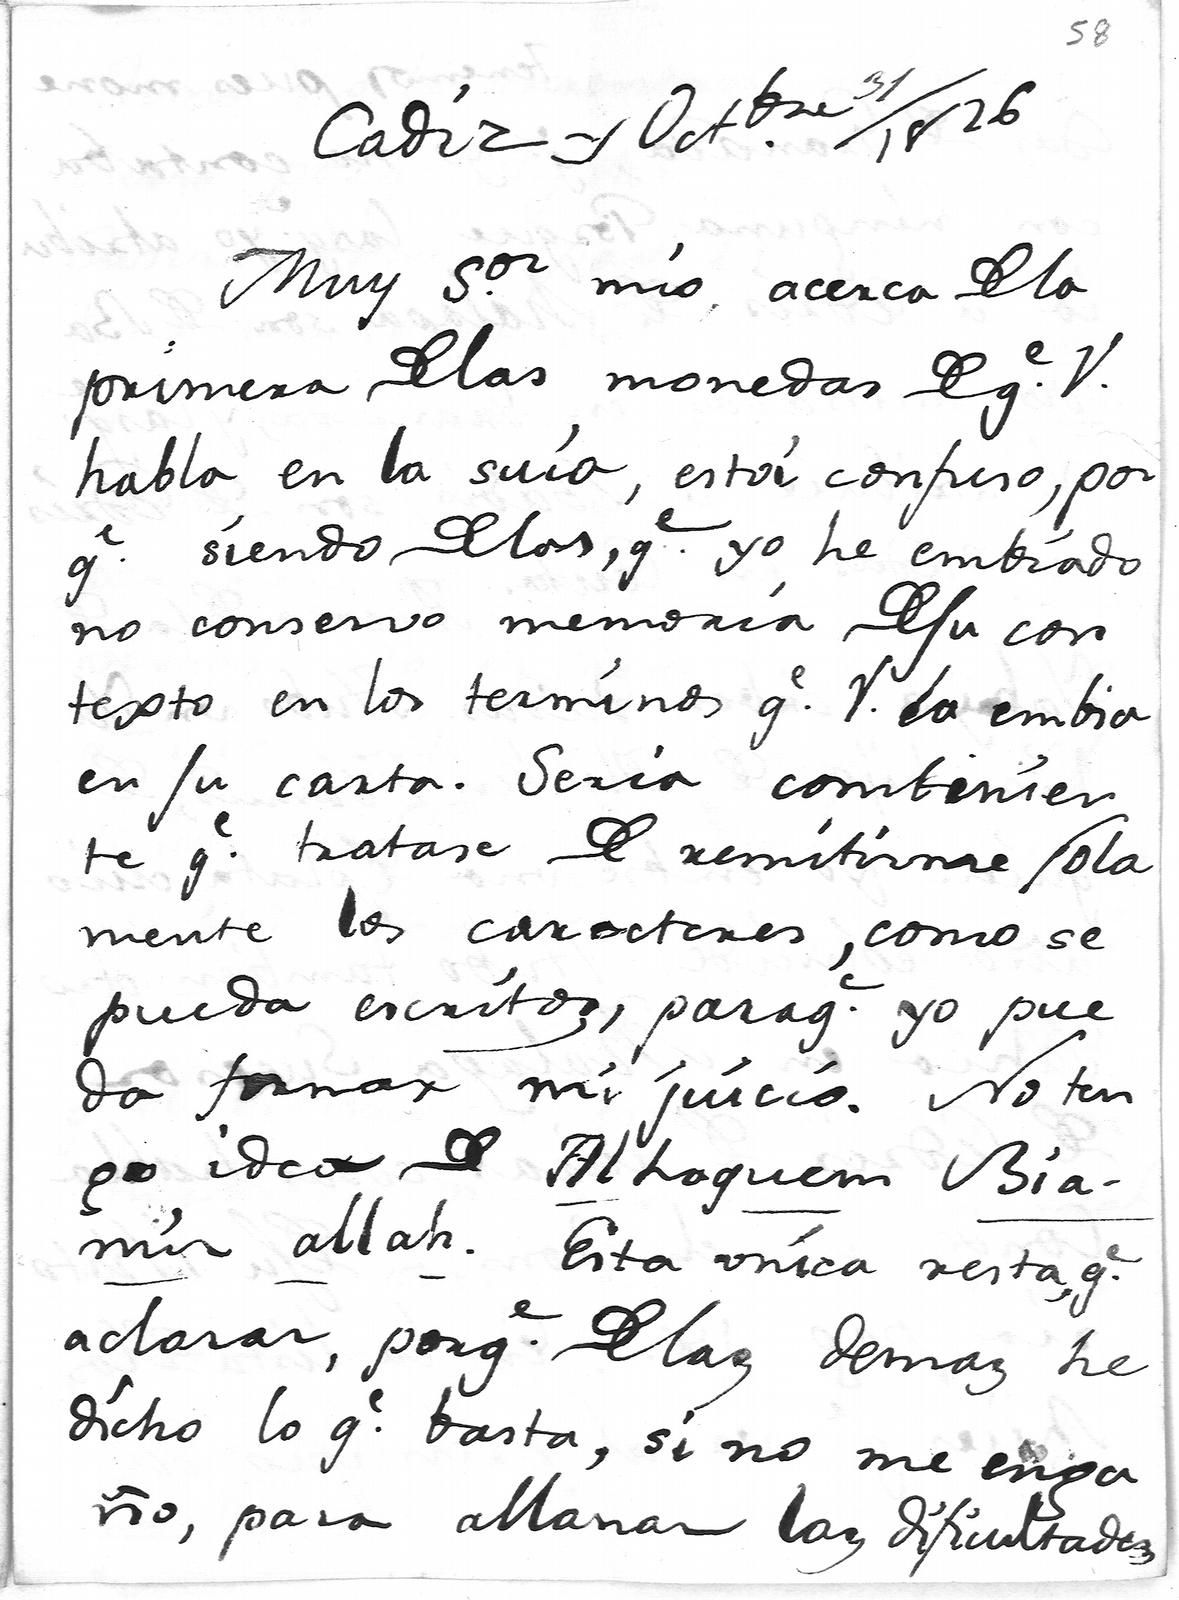 58
Cadiz y Octbre. 31/1826
Muy Sor. mio, acerca Dla
primera Dlas monedas Dqe. V.
habla en la suia, estoi confuso, por
qe. siendo Dlas, qe. yo he embiado
no conservo memoria Dsu con
texto en los terminos qe. V. la embia
en su carta. Seria combenien
te qe. tratase D remitirme sola
mente los caracteres, como se
pueda escritos, paraqe. yo pue
da formar mi juicio. No ten
go idea D Alhaquem Bia-
mir allah. Esta unica resta, qe.
aclarar, porqe. Dlaz demaz he
dicho lo qe. basta, si no me enga
ño, para allanar laz dificultadez